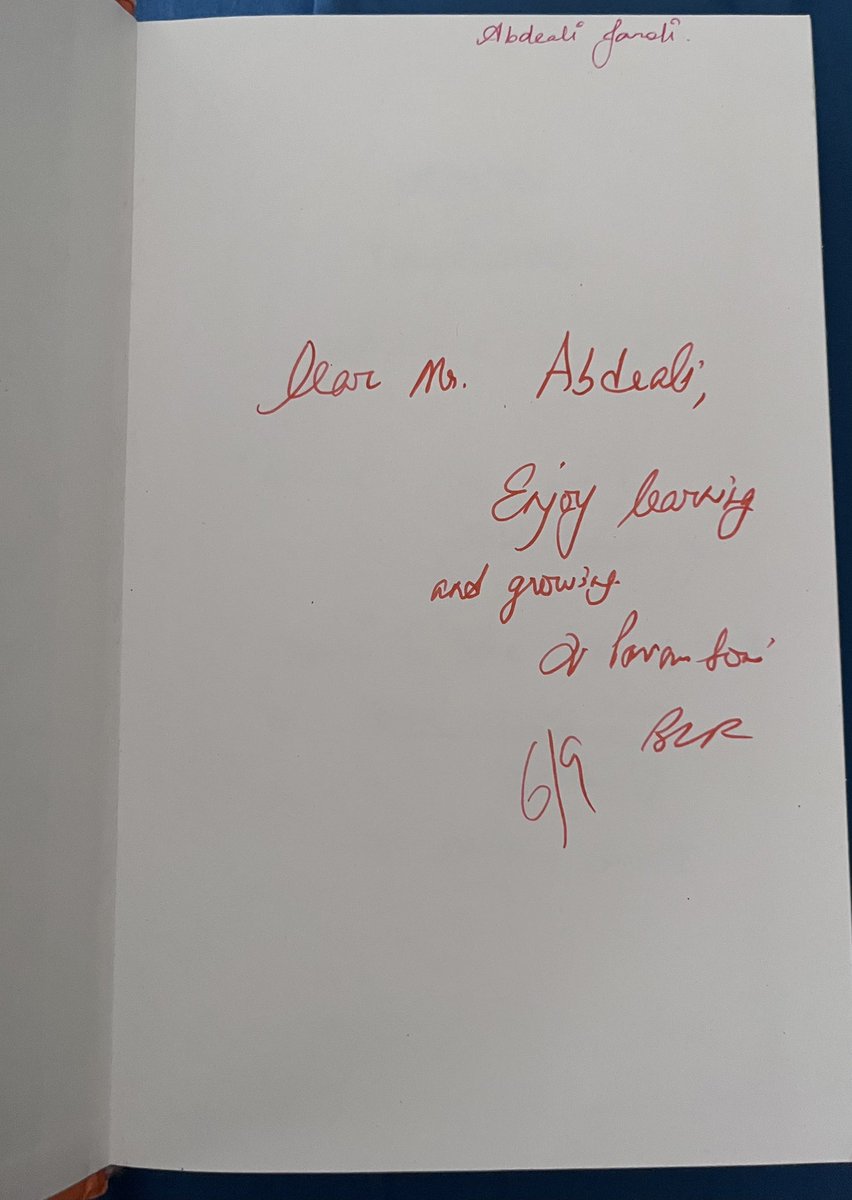 Abdeali Jaroli.
Dear Mr. Abdeali,
Enjoy learning
and growing
Dr Pavan Soni
BLR
6/9